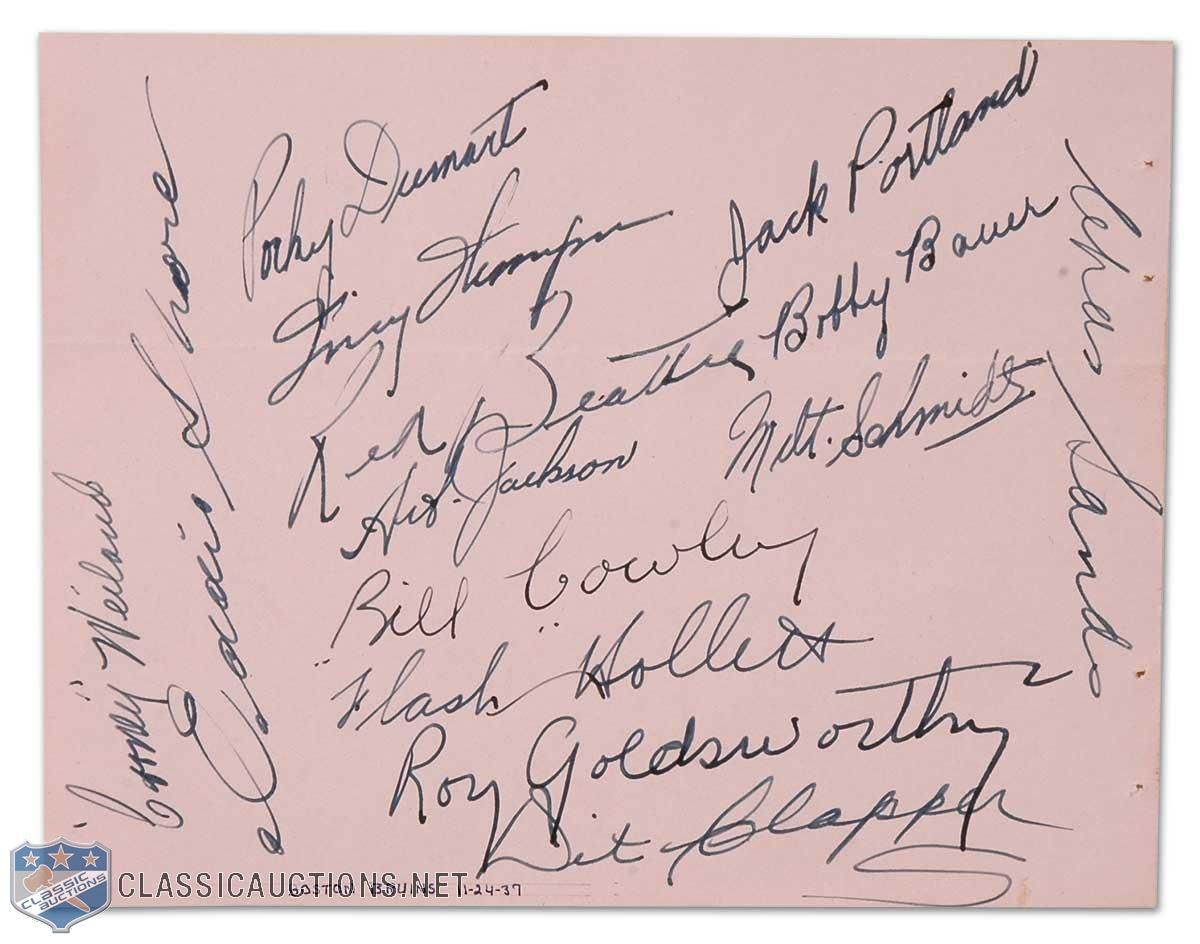 Porky Dumart
Jack Portland
Tiny Thompson
Bobby Bauer
Red Beattie
Milt. Schmidt
Art. Jackson
Bill Cowley
"Flash" Hollett
Roy Goldsworthy
Dit Clapper
"Cooney" Weiland
Eddie Shore
Chas Sands
BOSTON BRUINS 11-24-37
CLASSIC AUCTIONS
CLASSICAUCTIONS.NET